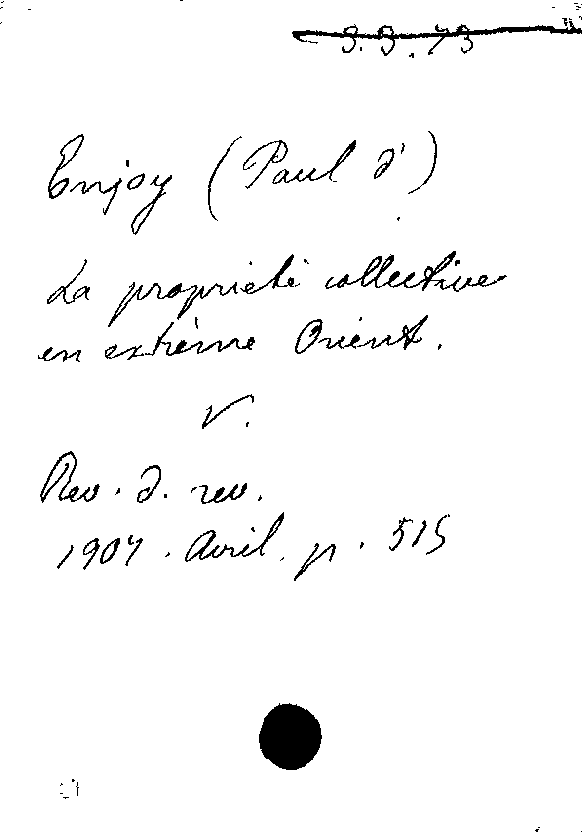 9.9.73
Enjoy (Paul d')
La propriété collective
en extrème Orient.
V.
Rev. d. rev.
1907. Avril. p. 515